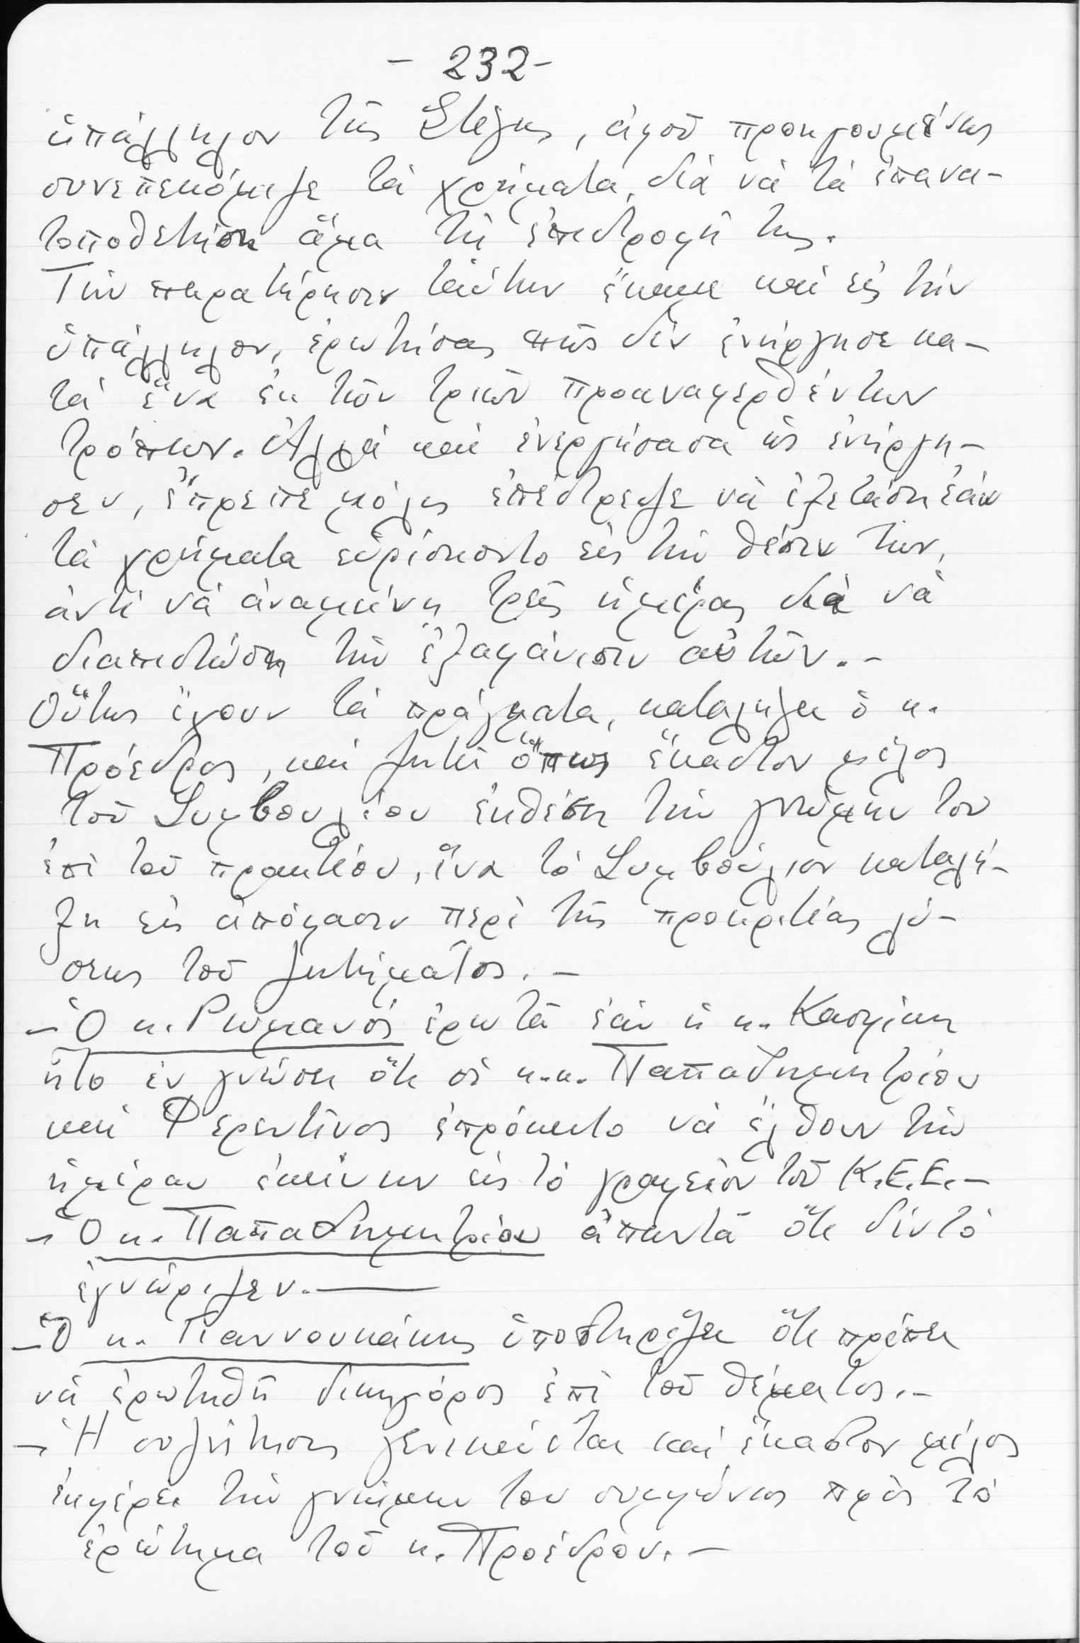 - 232 -
ὑπάλληλον τῆς Στέγης, ἀφοῦ προηγουμένως
συνεπεκόμιζε τὰ χρήματα, διὰ νὰ τὰ ἐπανα-
τοποθετήση ἅμα τῇ ἐπιστροφῇ της.
Τὴν παρατήρησιν ταύτην ἔκαμε καὶ εἰς τὴν
ὑπάλληλον, ἐρωτήσας πῶς δὲν ἐνήργησε κα-
τὰ ἕνα ἐκ τῶν τριῶν προαναφερθέντων
τρόπων. Ἀλλὰ καὶ ἐνεργήσασα ὡς ἐνήργη-
σεν, ἔπρεπε μόλις ἐπέστρεψε νὰ ἐξετάση ἐὰν
τὰ χρήματα εὑρίσκοντο εἰς τὴν θέσιν των,
ἀντὶ νὰ ἀναμείνη τρεῖς ἡμέρας διὰ νὰ
διαπιστώση τὴν ἐξαφάνισιν αὐτῶν.-
Οὕτως ἔχουν τὰ πράγματα, καταλήγει ὁ κ.
Πρόεδρος, καὶ ζητεῖ ὅπως ἕκαστον μέλος
τοῦ Συμβουλίου ἐκθέση τὴν γνώμην του
ἐπὶ τοῦ πρακτέου, ἵνα τὸ Συμβούλιον καταλή-
ξη εἰς ἀπόφασιν περὶ τῆς προκριτέας λύ-
σεως τοῦ ζητήματος.-
- Ὁ κ. Ρωμανός ἐρωτᾶ ἐὰν ἡ κ. Κασμίκη
ἦτο ἐν γνώσει ὅτι οἱ κ.κ. Παπαδημητρίου
καὶ Φερεντῖνος ἐπρόκειτο νὰ ἔλθουν τὴν
ἡμέραν ἐκείνην εἰς τὸ γραφεῖον τοῦ Κ.Ε.Ε.-
- Ὁ κ. Παπαδημητρίου ἀπαντᾶ ὅτι δὲν τὸ
ἐγνώριζεν.-
- Ὁ κ. Γιαννουκάκης ὑποστηρίζει ὅτι πρέπει
νὰ ἐρωτηθῆ δικηγόρος ἐπὶ τοῦ θέματος.-
- Ἡ συζήτησις γενικεύεται καὶ ἕκαστον μέλος
ἐκφέρει τὴν γνώμην του συμφώνως πρὸς τὸ
ἐρώτημα τοῦ κ. Προέδρου.-